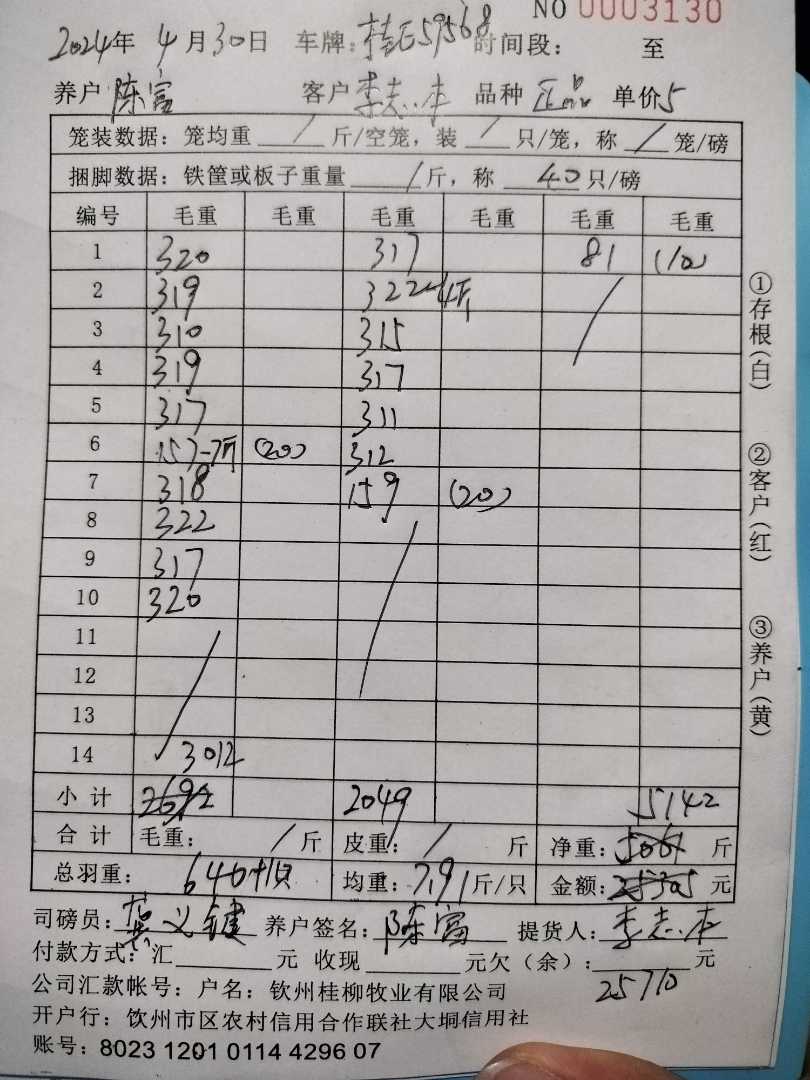 NO 0003130
2024年 4月30日 车牌:桂E59568 时间段: 至
养户 陈富 客户 李志本 品种 正品 单价5
笼装数据:笼均重 / 斤/空笼,装 / 只/笼,称 / 笼/磅
捆脚数据:铁筐或板子重量 / 斤,称 40只/磅
编号 毛重 毛重 毛重 毛重 毛重 毛重
1 320 317 81 (10)
2 319 322-4斤
3 310 315
4 319 317
5 317 311
6 157-7斤 (20) 312
7 318 159 (20)
8 322
9 317
10 320
11
12
13
14 3012
小计 2049 5142
合计 毛重: / 斤 皮重: / 斤 净重:5061斤
总羽重: 640+1只 均重:7.91斤/只 金额:25305元
司磅员:龚义键 养户签名:陈富 提货人:李志本
付款方式:汇 元 收现 元欠(余): 元
25710
公司汇款帐号:户名:钦州桂柳牧业有限公司
开户行:饮州市区农村信用合作联社大垌信用社
账号:8023 1201 0114 4296 07
①存根(白)
②客户(红)
③养户(黄)